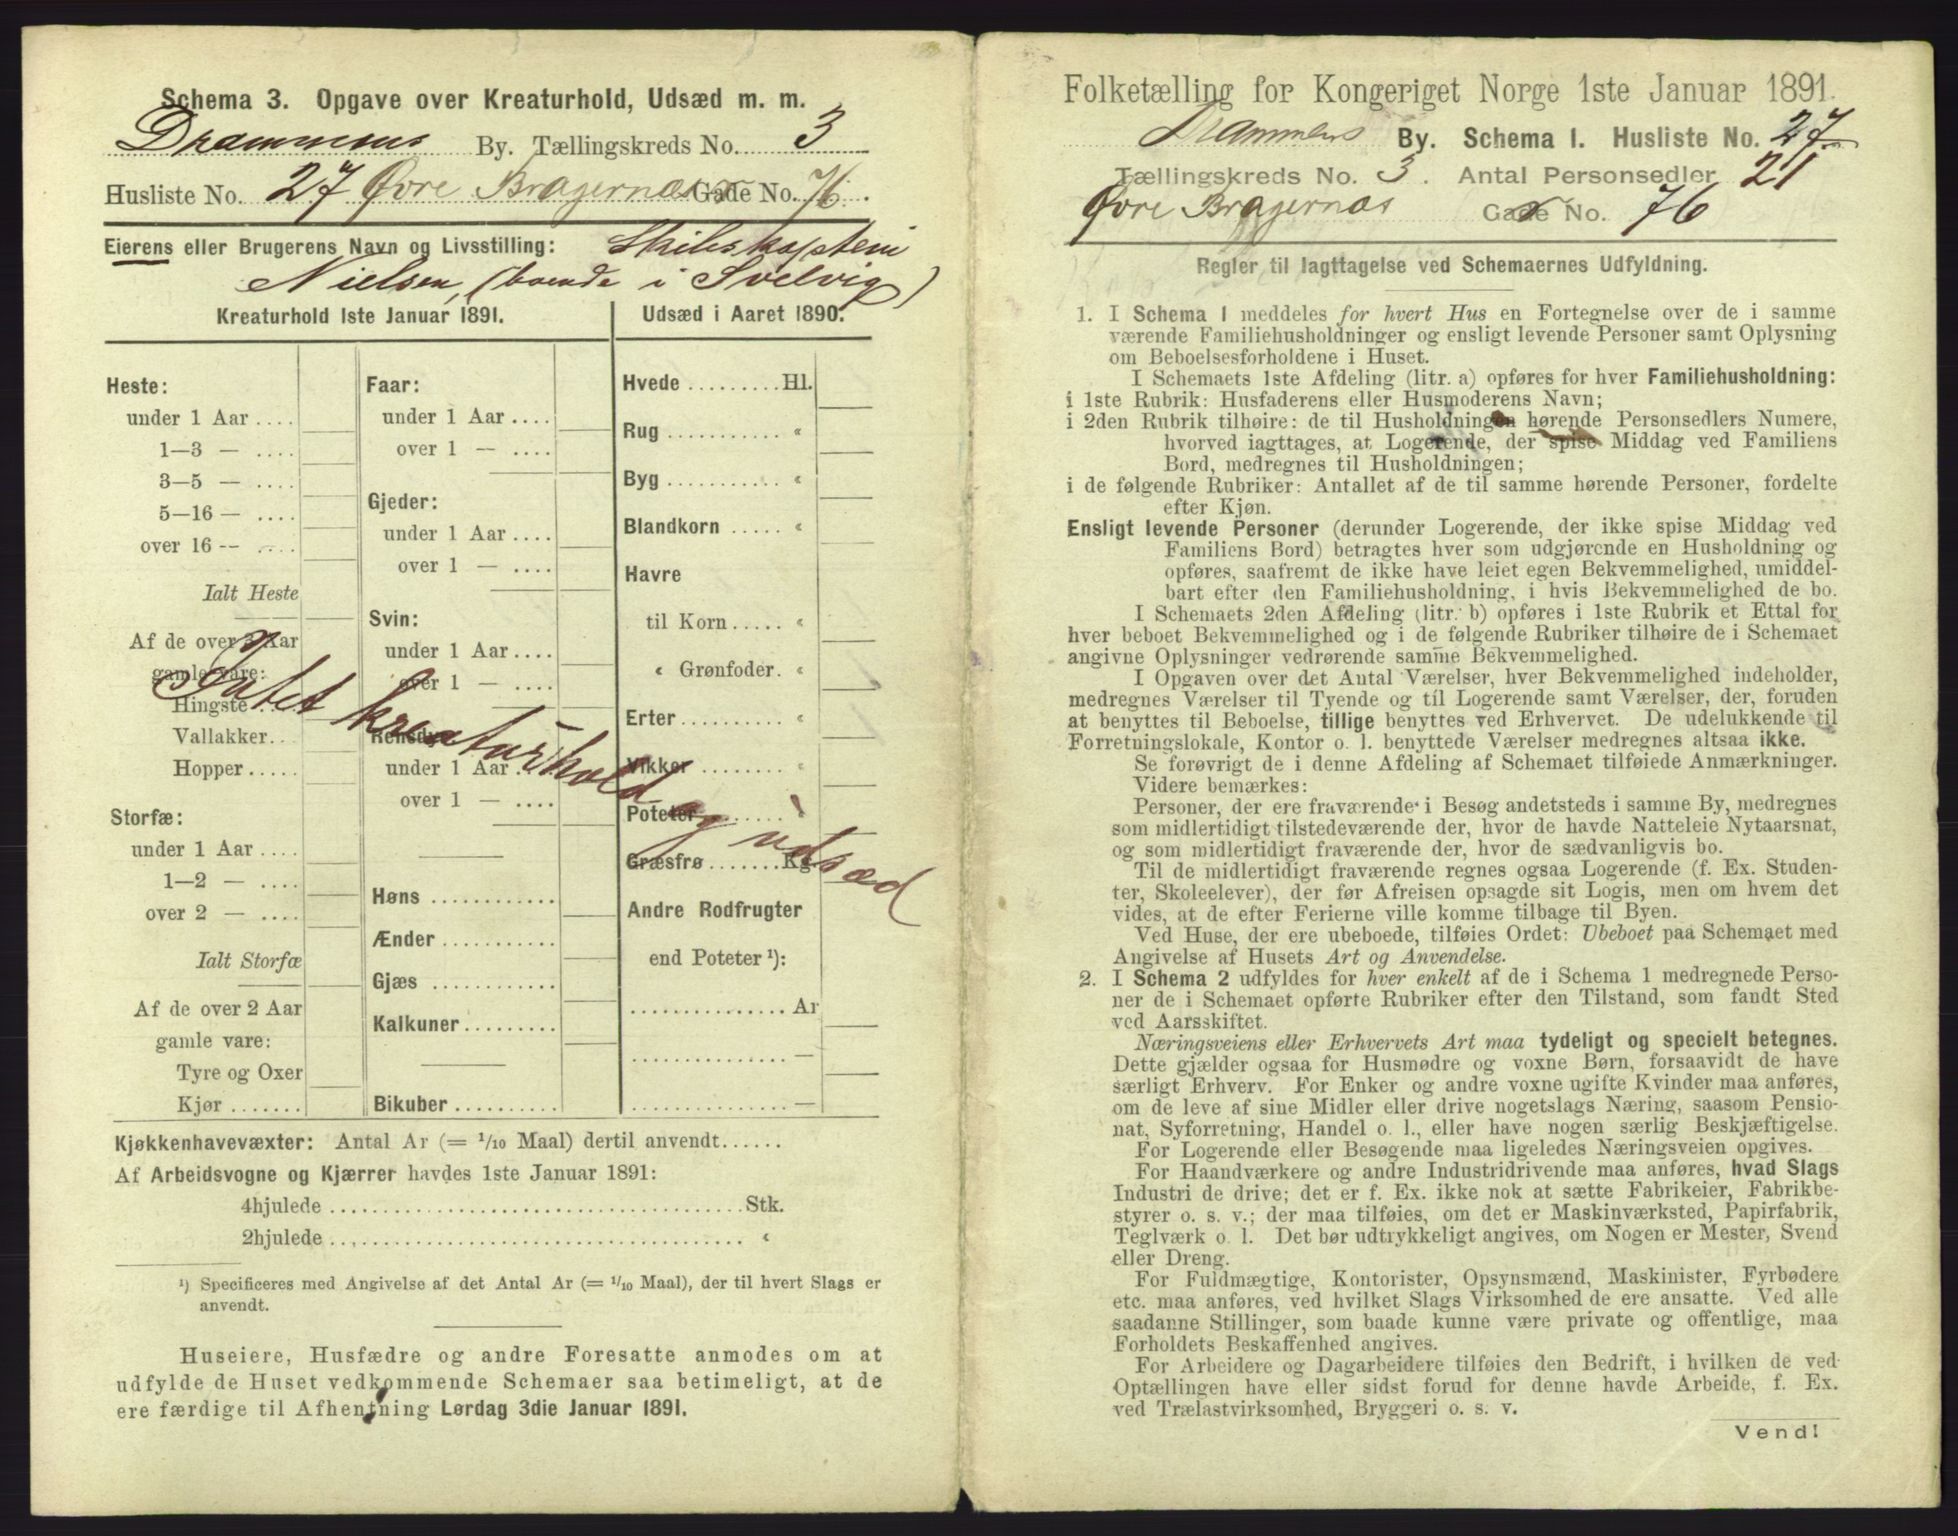 Schema 3. Opgave over Kreaturhold, Udsæd m. m.
Drammens By. Tællingskreds No. 3
Husliste No. 27 Øvre Bragernæs Gade No. 76.
Eierens eller Brugerens Navn og Livsstilling: Skibskaptein
Nielsen, (boende i Svelvig)
Kreaturhold 1ste Januar 1891.
Heste:
under 1 Aar ....
1—3 — ....
3—5 — ....
5—16 — ....
over 16 — ....
Ialt Heste
Af de over 3 Aar
gamle vare:
Hingste ....
Vallakker..
Hopper.....
Storfæ:
under 1 Aar ....
1—2 — ....
over 2 — ....
Ialt Storfæ
Af de over 2 Aar
gamle vare:
Tyre og Oxer
Kjør.......
Faar:
under 1 Aar ....
over 1 — ....
Gjeder:
under 1 Aar ....
over 1 — ....
Svin:
under 1 Aar ....
over 1 — ....
Rensdyr:
under 1 Aar ....
over 1 — ....
Høns ............
Ænder ...........
Gjæs ............
Kalkuner.........
Bikuber..........
Udsæd i Aaret 1890.
Hvede .........Hl.
Rug ........... «
Byg ........... «
Blandkorn ..... «
Havre
til Korn ..... «
« Grønfoder. «
Erter.......... «
Vikker ........ «
Poteter........ «
Græsfrø .......Kg.
Andre Rodfrugter
end Poteter ¹):
............... Ar
............... —
............... —
Intet kreaturhold og udsæd
Kjøkkenhavevæxter: Antal Ar (= 1/10 Maal) dertil anvendt......
Af Arbeidsvogne og Kjærrer havdes 1ste Januar 1891:
4hjulede ........................................Stk.
2hjulede ........................................ «
¹) Specificeres med Angivelse af det Antal Ar (= 1/10 Maal), der til hvert Slags er
anvendt.
Huseiere, Husfædre og andre Foresatte anmodes om at
udfylde de Huset vedkommende Schemaer saa betimeligt, at de
ere færdige til Afhentning Lørdag 3die Januar 1891.
Folketælling for Kongeriget Norge 1ste Januar 1891.
Drammens By. Schema I. Husliste No. 27
Tællingskreds No. 3. Antal Personsedler 21
Øvre Bragernæs Gade No. 76
Regler til Iagttagelse ved Schemaernes Udfyldning.
1. I Schema 1 meddeles for hvert Hus en Fortegnelse over de i samme
værende Familiehusholdninger og ensligt levende Personer samt Oplysning
om Beboelsesforholdene i Huset.
I Schemaets 1ste Afdeling (litr. a) opføres for hver Familiehusholdning:
i 1ste Rubrik: Husfaderens eller Husmoderens Navn;
i 2den Rubrik tilhøire: de til Husholdningen hørende Personsedlers Numere,
hvorved iagttages, at Logerende, der spise Middag ved Familiens
Bord, medregnes til Husholdningen;
i de følgende Rubriker: Antallet af de til samme hørende Personer, fordelte
efter Kjøn.
Ensligt levende Personer (derunder Logerende, der ikke spise Middag ved
Familiens Bord) betragtes hver som udgjørende en Husholdning og
opføres, saafremt de ikke have leiet egen Bekvemmelighed, umiddel-
bart efter den Familiehusholdning, i hvis Bekvemmelighed de bo.
I Schemaets 2den Afdeling (litr. b) opføres i 1ste Rubrik et Ettal for
hver beboet Bekvemmelighed og i de følgende Rubriker tilhøire de i Schemaet
angivne Oplysninger vedrørende samme Bekvemmelighed.
I Opgaven over det Antal Værelser, hver Bekvemmelighed indeholder,
medregnes Værelser til Tyende og til Logerende samt Værelser, der, foruden
at benyttes til Beboelse, tillige benyttes ved Erhvervet. De udelukkende til
Forretningslokale, Kontor o. l. benyttede Værelser medregnes altsaa ikke.
Se forøvrigt de i denne Afdeling af Schemaet tilføiede Anmærkninger.
Videre bemærkes:
Personer, der ere fraværende i Besøg andetsteds i samme By, medregnes
som midlertidigt tilstedeværende der, hvor de havde Natteleie Nytaarsnat,
og som midlertidigt fraværende der, hvor de sædvanligvis bo.
Til de midlertidigt fraværende regnes ogsaa Logerende (f. Ex. Studen-
ter, Skoleelever), der før Afreisen opsagde sit Logis, men om hvem det
vides, at de efter Ferierne ville komme tilbage til Byen.
Ved Huse, der ere ubeboede, tilføies Ordet: Ubeboet paa Schemaet med
Angivelse af Husets Art og Anvendelse.
2. I Schema 2 udfyldes for hver enkelt af de i Schema 1 medregnede Perso-
ner de i Schemaet opførte Rubriker efter den Tilstand, som fandt Sted
ved Aarsskiftet.
Næringsveiens eller Erhvervets Art maa tydeligt og specielt betegnes.
Dette gjælder ogsaa for Husmødre og voxne Børn, forsaavidt de have
særligt Erhverv. For Enker og andre voxne ugifte Kvinder maa anføres,
om de leve af sine Midler eller drive nogetslags Næring, saasom Pensio-
nat, Syforretning, Handel o. l., eller have nogen særlig Beskjæftigelse.
For Logerende eller Besøgende maa ligeledes Næringsveien opgives.
For Haandværkere og andre Industridrivende maa anføres, hvad Slags
Industri de drive; det er f. Ex. ikke nok at sætte Fabrikeier, Fabrikbe-
styrer o. s. v.; der maa tilføies, om det er Maskinværksted, Papirfabrik,
Teglværk o. l. Det bør udtrykkeligt angives, om Nogen er Mester, Svend
eller Dreng.
For Fuldmægtige, Kontorister, Opsynsmænd, Maskinister, Fyrbødere
etc. maa anføres, ved hvilket Slags Virksomhed de ere ansatte. Ved alle
saadanne Stillinger, som baade kunne være private og offentlige, maa
Forholdets Beskaffenhed angives.
For Arbeidere og Dagarbeidere tilføies den Bedrift, i hvilken de ved
Optællingen have eller sidst forud for denne havde Arbeide, f. Ex.
ved Trælastvirksomhed, Bryggeri o. s. v.
Vend!